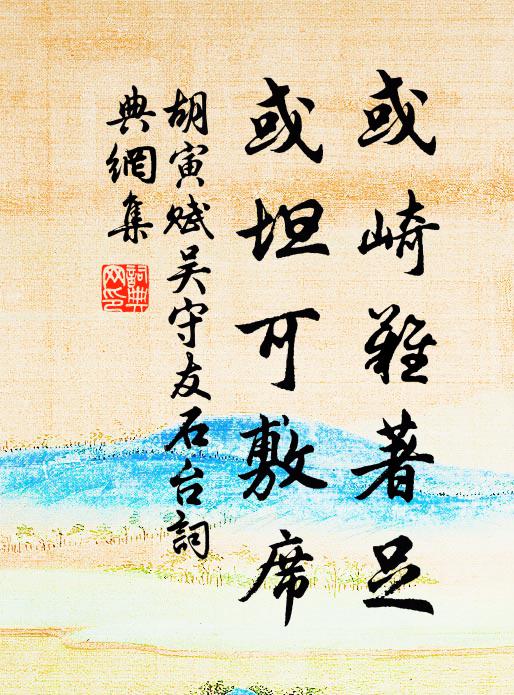 或崎难著足
或坦可敷席
胡寅赋吴守友石台詞
典網集
詞典网印